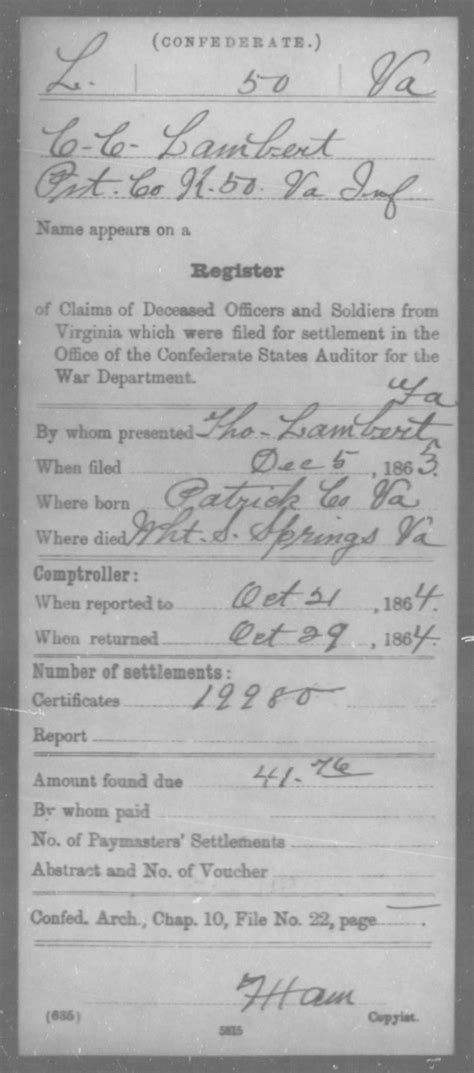 (CONFEDERATE.)
L. 50 Va
C-C- Lambert
Pvt. Co K. 50. Va Inf
Name appears on a
Register
of Claims of Deceased Officers and Soldiers from
Virginia which were filed for settlement in the
Office of the Confederate States Auditor for the
War Department.
Fa
By whom presented Tho- Lambert
When filed Dec 5, 1863.
Where born Patrick Co Va
Where died Wht. S. Springs Va
Comptroller:
When reported to Oct 21, 1864.
When returned Oct 29, 1864.
Number of settlements:
Certificates 19980
Report
Amount found due 41.76
By whom paid
No. of Paymasters' Settlements
Abstract and No. of Voucher
Confed. Arch., Chap. 10, File No. 22, page —.
Ham
(635) Copyist.
5815